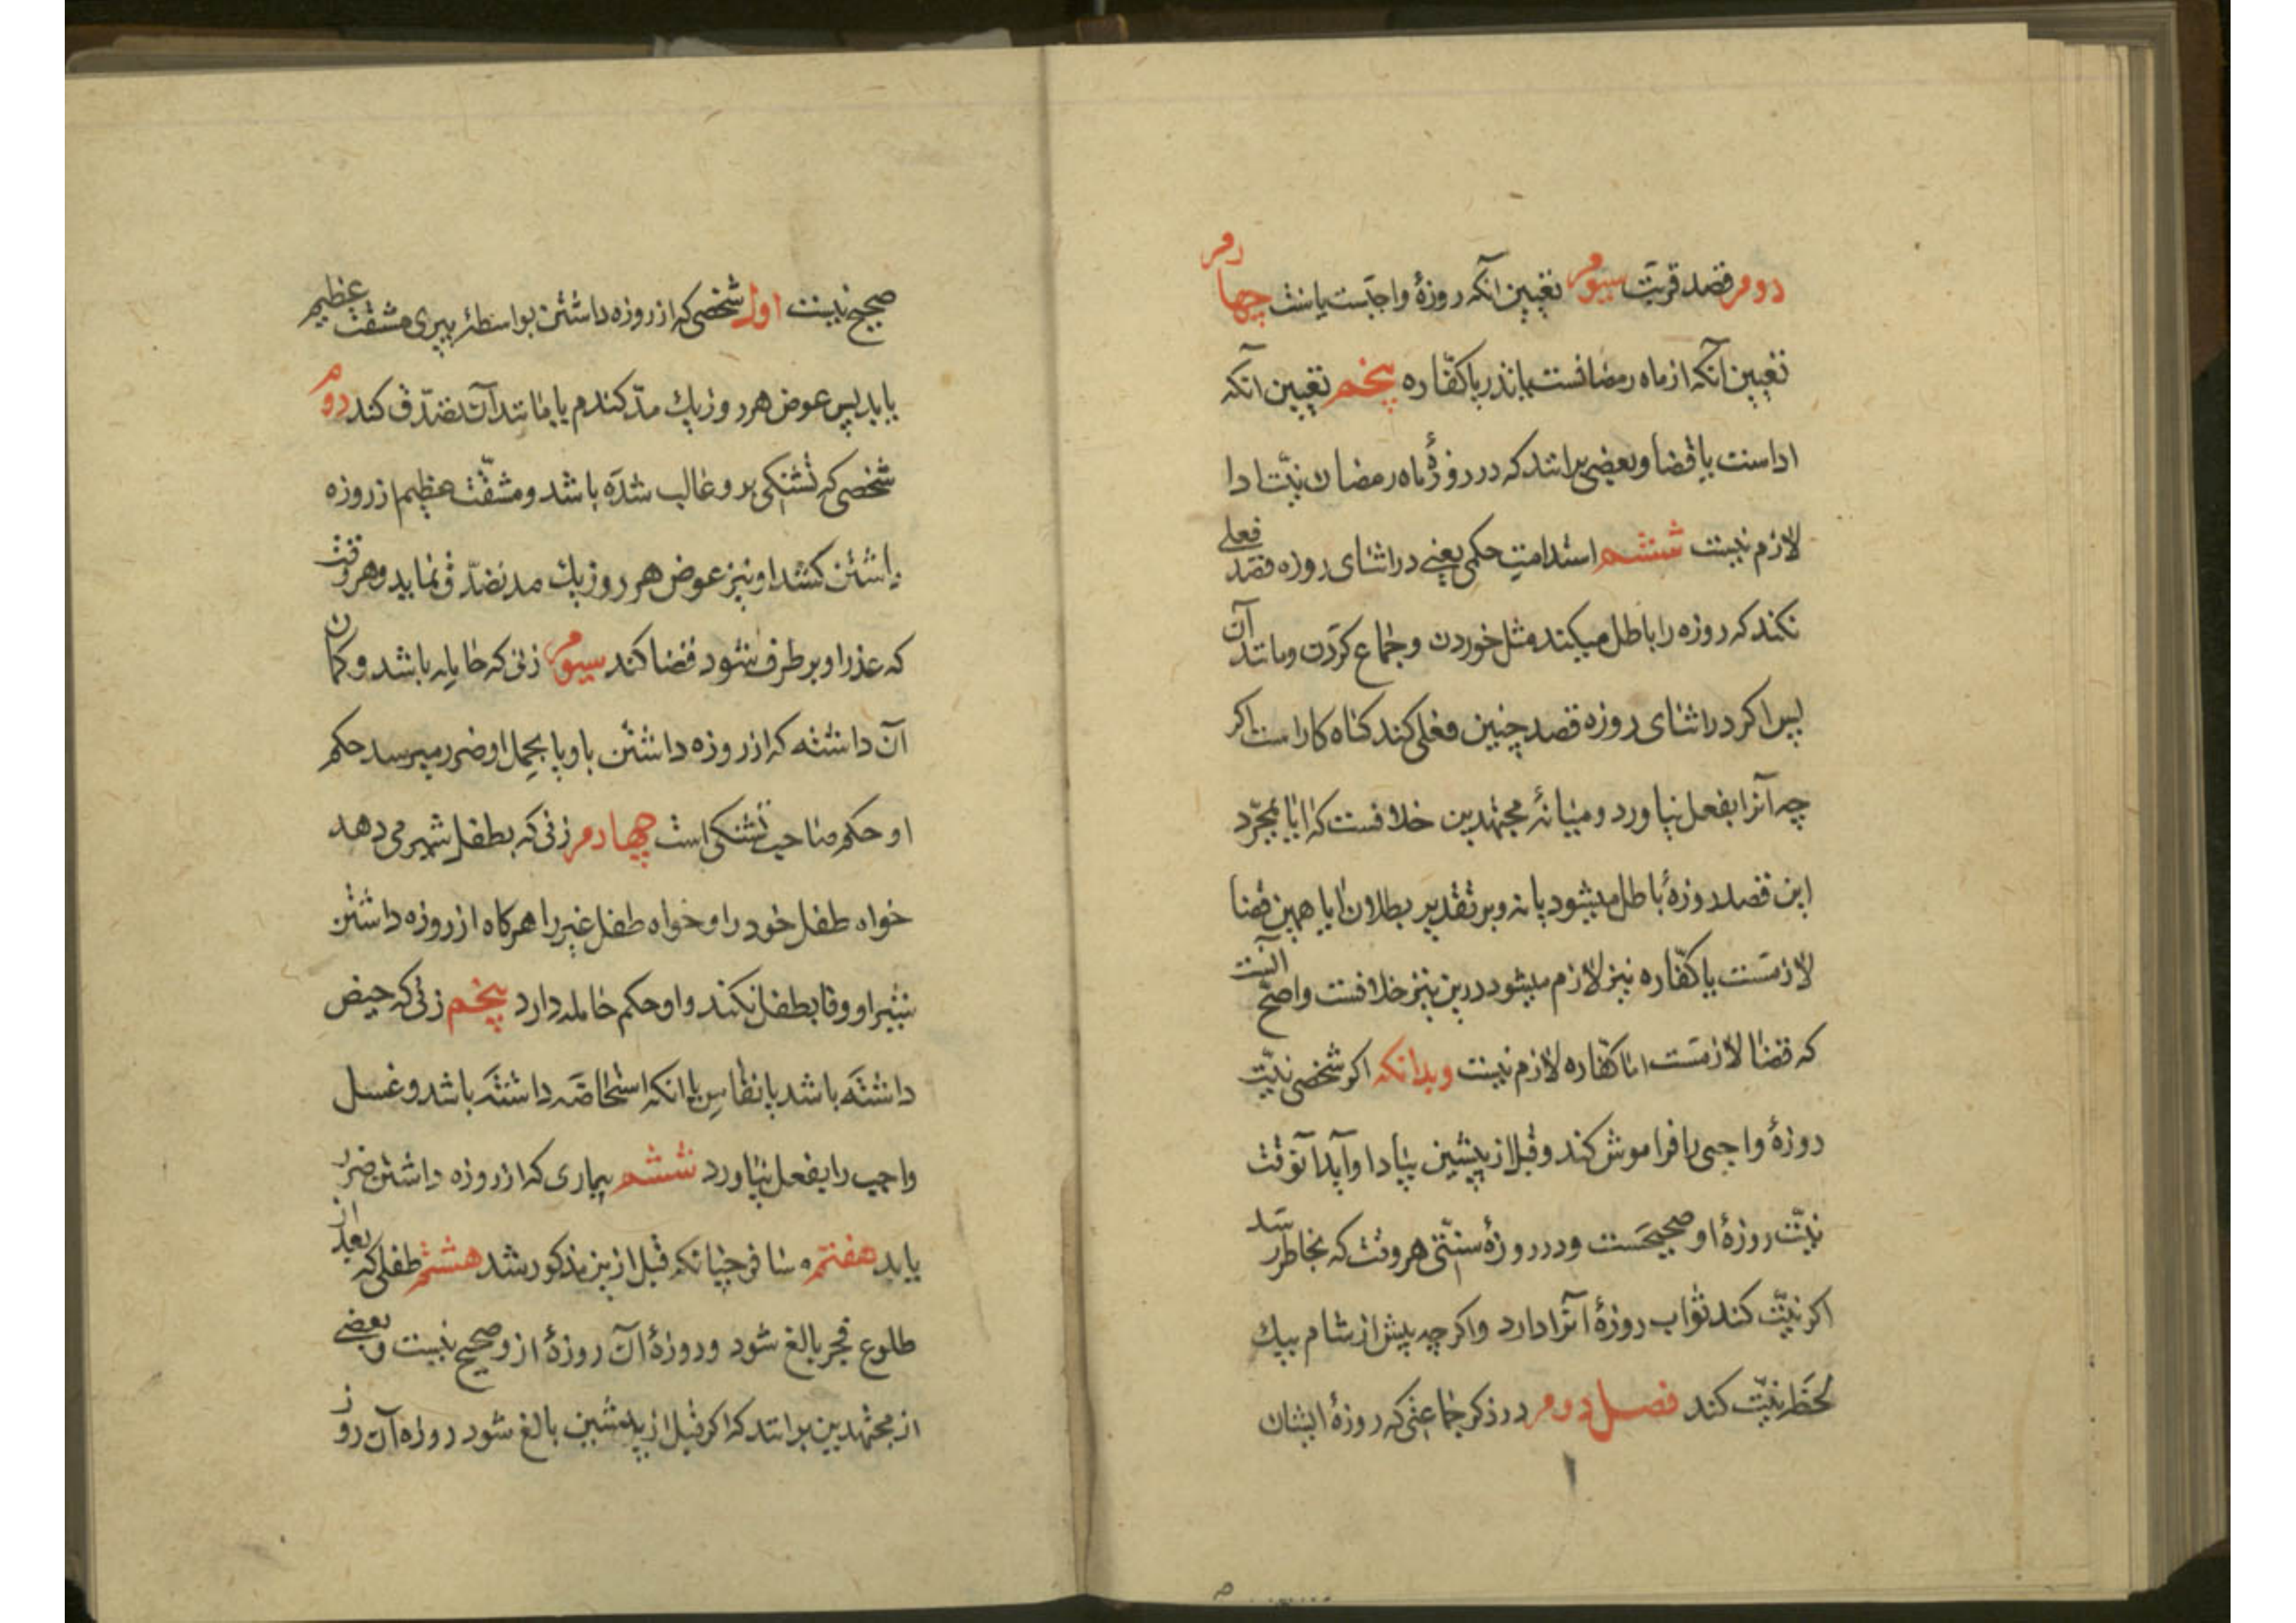 دوم قصد قربت سیوم تعیین آنکه روزهٔ واجبست یا سنت چهارم
تعیین آنکه از ماه رمضانست یا نذر یا کفّاره پنجم تعیین آنکه
اداست یا قضا و بعضی برانند که در روزهٔ ماه رمضان نیّت ادا
لازم نیست ششم استدامتِ حکمی یعنی در اثنای روزه قصد فعلی
نکند که روزه را باطل میکند مثل خوردن و جماع کردن و مانند آن
پس اگر در اثنای روزه قصد چنین فعلی کند کناه کار است اگر
چه آنرا بفعل نیاورد و میانهٔ مجتهدین خلافست که ایا بمجرّد
این قصد روزهٔ باطل میشود یا نه و بر تقدیر بطلان ایا همین قضا
لازمست یا کفّاره نیز لازم میشود درین نیز خلافست و اصحّ آنست
که قضا لازمست اما کفّاره لازم نیست وبدانکه اکر شخصی نیّت
روزهٔ واجبی را فراموش کند و قبل از پیشین بیاد او آید آنوقت
نیّت روزهٔ او صحیحست و در روزهٔ سنّتی هر وقت که بخاطر رسد
اکر نیّت کند ثواب روزهٔ آنرا دارد و اکر چه پیش از شام بیک
لحظه نیّت کند فصل دوم در ذکر جماعتی که روزهٔ ایشان
صحیح نیست اول شخصی که از روزه داشتن بواسطهٔ پیری مشقّت عظیم
یابد پس عوض هر روز یك مدّ کندم یا مانند آن تصدّق کند دوم
شخصی که تشنکی برو غالب شده باشد و مشقّت عظیم از روزه
داشتن کشد او نیز عوض هر روز یك مد تصدّق نماید و هر وقت
که عذر او بر طرف شود قضا کند سیوم زنی که حامله باشد و کمان
آن داشته که از روزه داشتن باو یا بحمل او ضرر میرسد حکم
او حکم صاحب تشنکی است چهارم زنی که بطفل شیر می دهد
خواه طفل خود را و خواه طفل غیر را هرکاه از روزه داشتن
شیر او وفا بطفل نکند و او حکم حامله دارد پنجم زنی که حیض
داشته باشد یا نفاس یا انکه استحاضه داشته باشد و غسل
واجب را بفعل نیاورد ششم بیماری که از روزه داشتن ضرر
یابد هفتم مسافر چنانکه قبل ازین مذکور شد هشتم طفلی که بعد از
طلوع فجر بالغ شود و روزهٔ آن روزهٔ ازو صحیح نیست و بعضی
از مجتهدین برانند که اکر قبل از پیشین بالغ شود روزه آن روز